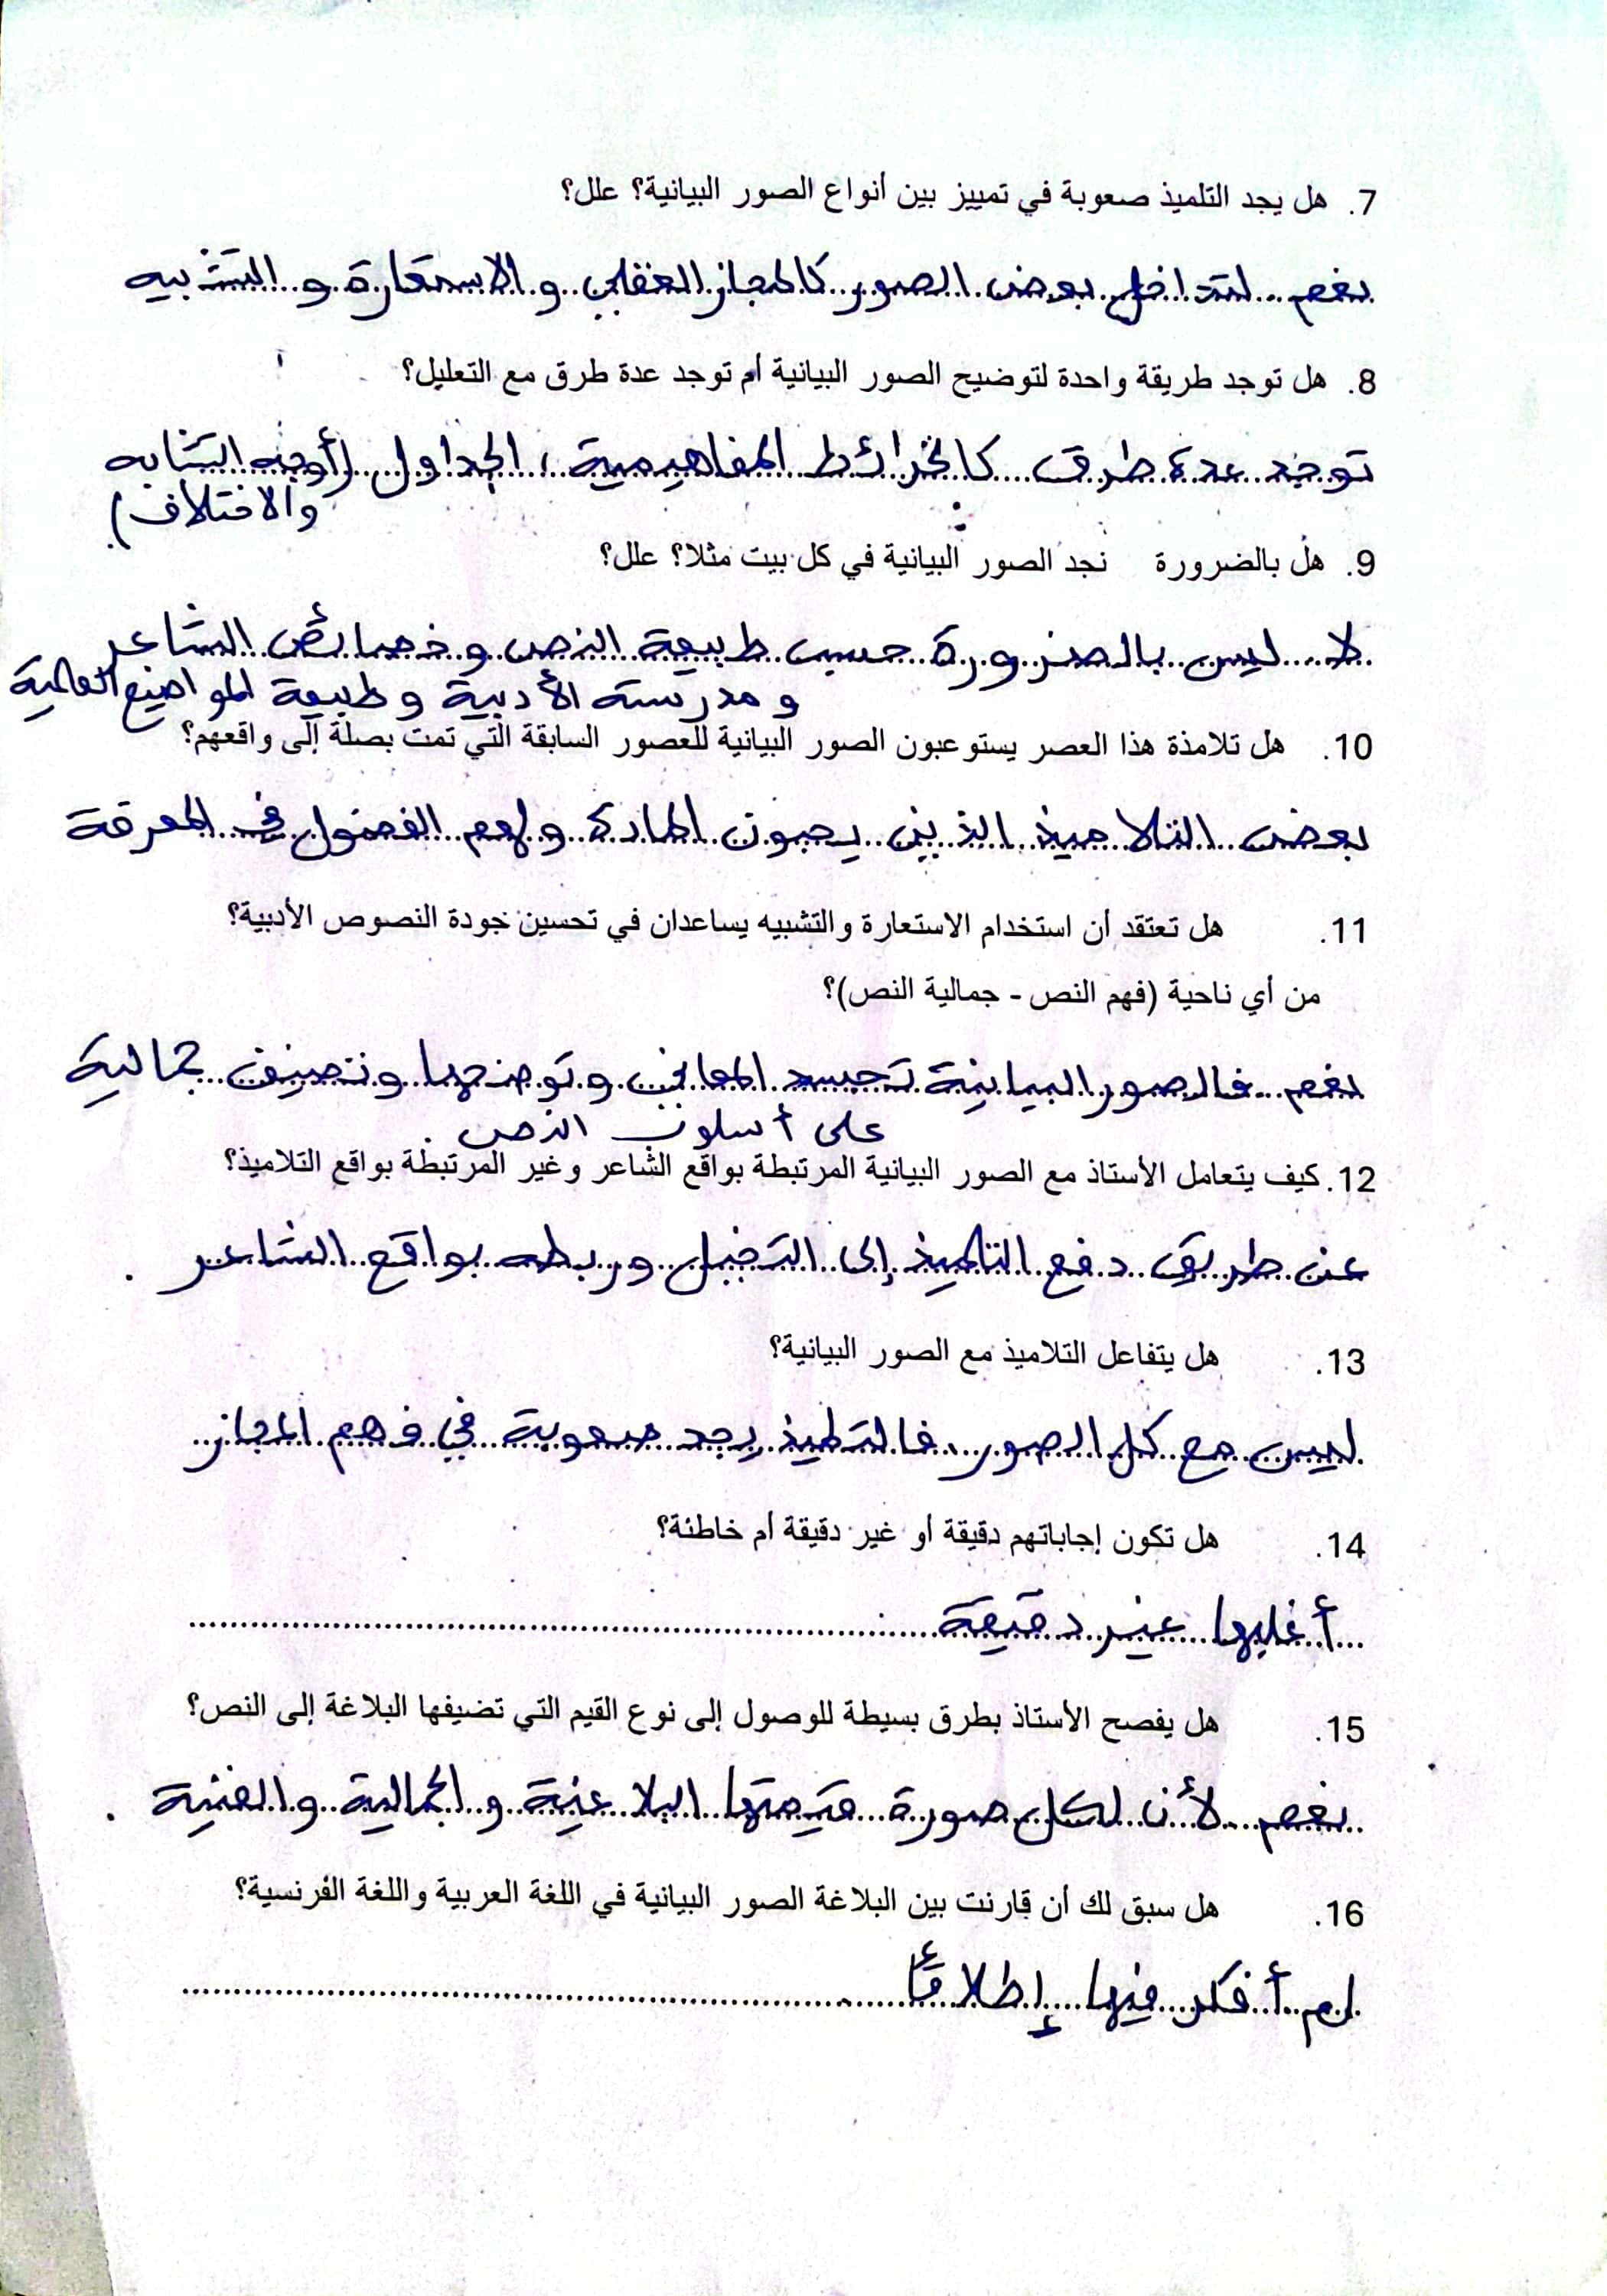 7. هل يجد التلميذ صعوبة في تمييز بين أنواع الصور البيانية؟ علل؟
نعم لتداخل بعض الصور كالمجاز العقلي والاستعارة و التشبيه
8. هل توجد طريقة واحدة لتوضيح الصور البيانية أم توجد عدة طرق مع التعليل؟
توجد عدة طرق كالخرائط المفاهيمية، الجداول (أوجه التشابه
والاختلاف)
9. هل بالضرورة نجد الصور البيانية في كل بيت مثلا؟ علل؟
لا ليس بالضرورة حسب طبيعة النص و خصائص الشاعر
و مدرسته الأدبية و طبيعة المواضيع
10. هل تلامذة هذا العصر يستوعبون الصور البيانية للعصور السابقة التي تمت بصلة إلى واقعهم؟
بعض التلاميذ الذين يحبون المادة و لهم الفضول في المعرفة
11. هل تعتقد أن استخدام الاستعارة والتشبيه يساعدان في تحسين جودة النصوص الأدبية؟
من أي ناحية (فهم النص - جمالية النص)؟
نعم فالصور البيانية تجسد المعاني و توضحها و تضيف جمالية
على أسلوب النص .
12. كيف يتعامل الأستاذ مع الصور البيانية المرتبطة بواقع الشاعر وغير المرتبطة بواقع التلاميذ؟
عن طريق دفع التلميذ إلى التخيل و ربطه بواقع الشاعر .
13. هل يتفاعل التلاميذ مع الصور البيانية؟
ليس مع كل الصور، فالتلميذ يجد صعوبة في فهم المجاز
14. هل تكون إجاباتهم دقيقة أو غير دقيقة أم خاطئة؟
أغلبها غير دقيقة
15. هل يفصح الأستاذ بطرق بسيطة للوصول إلى نوع القيم التي تضيفها البلاغة إلى النص؟
نعم لأن لكل صورة قيمتها البلاغية و الجمالية و الفنية .
16. هل سبق لك أن قارنت بين البلاغة الصور البيانية في اللغة العربية واللغة الفرنسية؟
لم أفكر فيها إطلاقًا